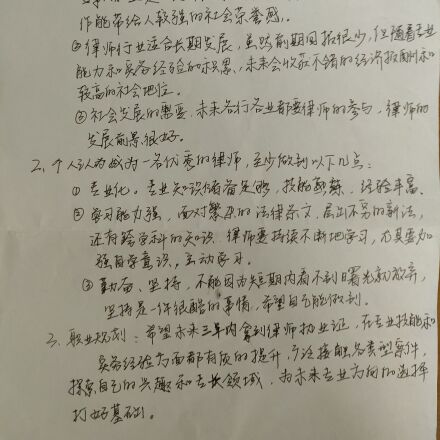 作能带给人较强的社会荣誉感。
②律师行业适合长期发展，虽然前期回报很少，但随着专业
能力和实务经验的积累，未来会收获不错的经济报酬和
较高的社会地位。
③社会发展的需要，未来各行各业都要律师的参与，律师的
发展前景很好。
2、个人认为成为一名优秀的律师，至少做到以下几点：
①专业化。专业知识储备足够，技能熟练、经验丰富、
②学习能力强，面对繁杂的法律条文，层出不穷的新法，
还有跨学科的知识，律师要持续不断地学习，尤其要加
强自学意识，主动学习。
③勤奋、坚持，不能因为短期内看不到曙光就放弃，
坚持是一件很酷的事情，希望自己能做到。
3、职业规划：希望未来三年内拿到律师执业证，在专业技能和
实务经验方面都有质的提升，广泛接触各类型案件，
探索自己的兴趣和专长领域，为未来专业方向的选择
打好基础。